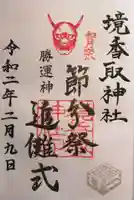 境香取神社
節分祭
追儺式
勝運神
令和二年二月九日